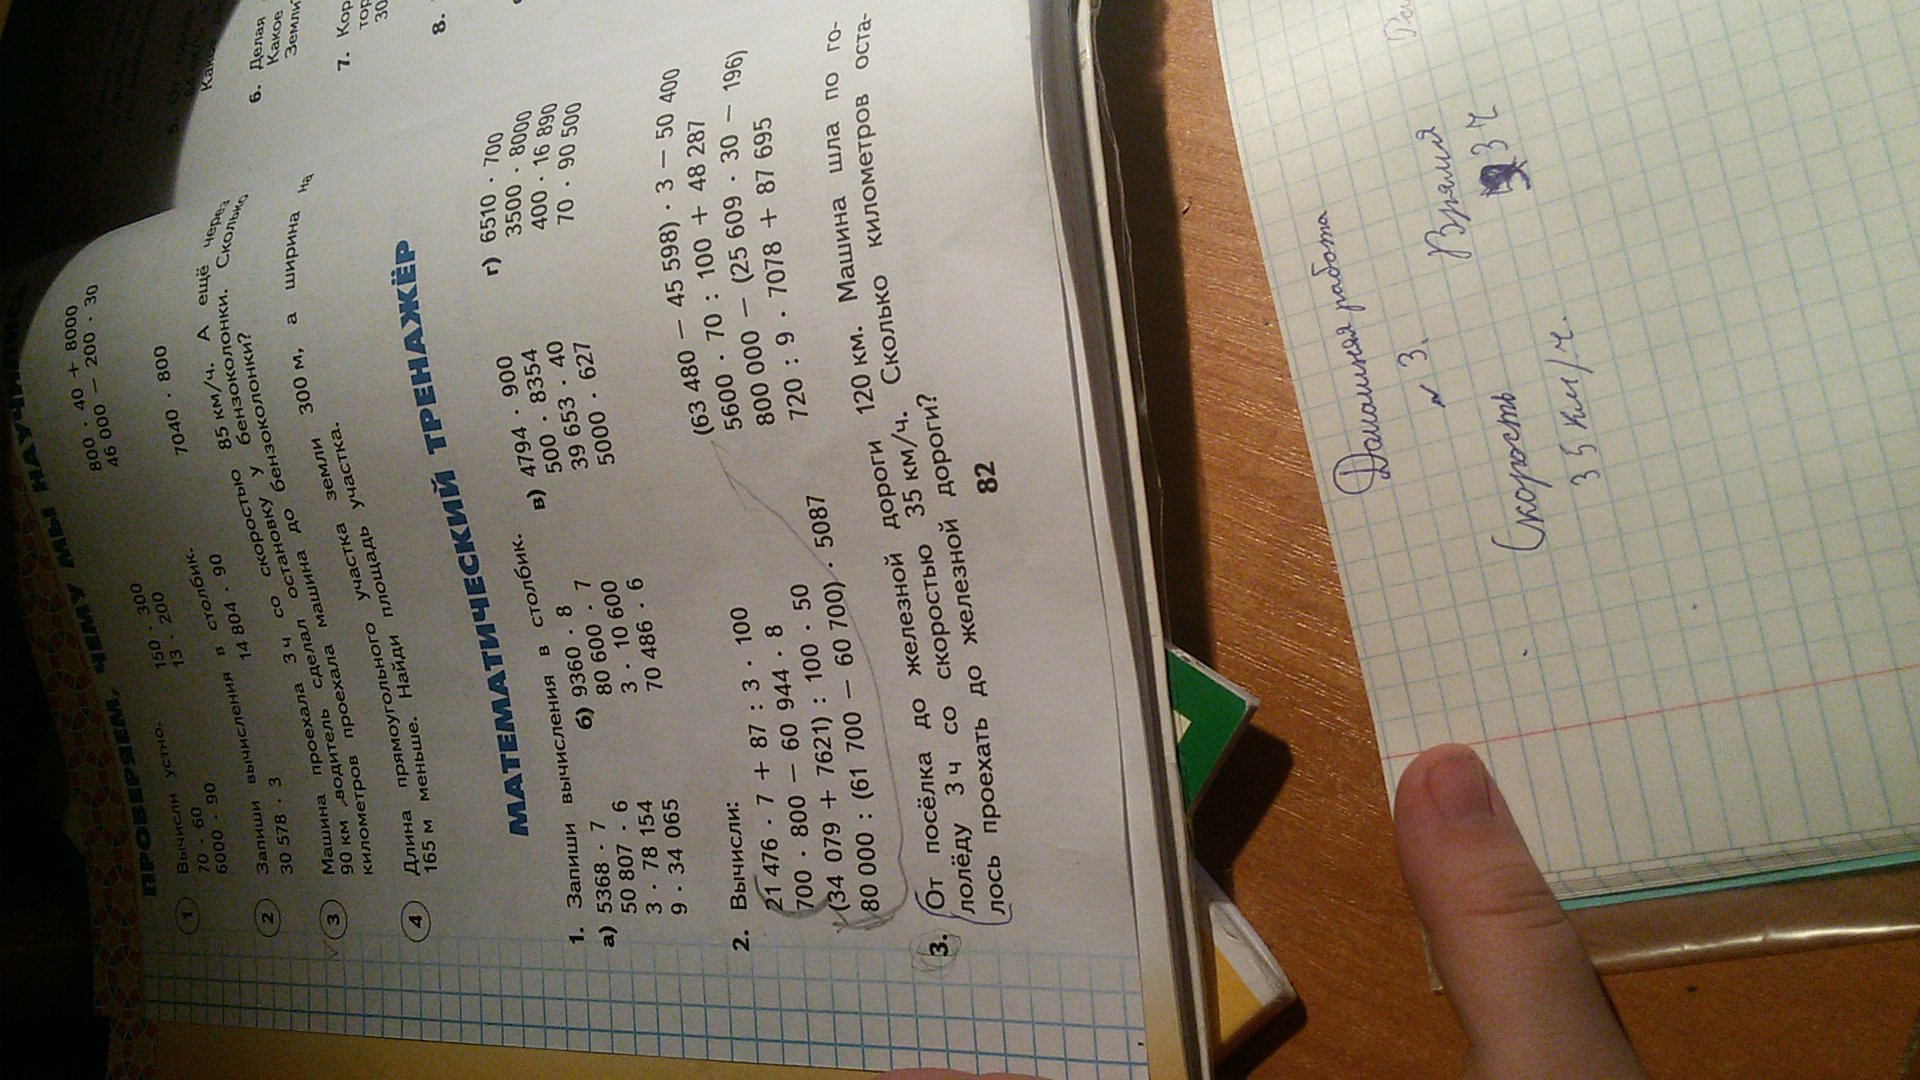 ПРОВЕРЯЕМ, ЧЕМУ МЫ НАУЧИЛИСЬ
1 Вычисли устно.
70 · 60 150 · 300 800 · 40 + 8000
6000 · 90 13 · 200 46 000 — 200 · 30
2 Запиши вычисления в столбик.
30 578 · 3 14 804 · 90 7040 · 800
3 Машина проехала 3 ч со скоростью 85 км/ч. А ещё через
90 км водитель сделал остановку у бензоколонки. Сколько
километров проехала машина до бензоколонки?
4 Длина прямоугольного участка земли 300 м, а ширина на
165 м меньше. Найди площадь участка.
МАТЕМАТИЧЕСКИЙ ТРЕНАЖЁР
1. Запиши вычисления в столбик.
а) 5368 · 7 б) 9360 · 8 в) 4794 · 900 г) 6510 · 700
50 807 · 6 80 600 · 7 500 · 8354 3500 · 8000
3 · 78 154 3 · 10 600 39 653 · 40 400 · 16 890
9 · 34 065 70 486 · 6 5000 · 627 70 · 90 500
2. Вычисли:
21 476 · 7 + 87 : 3 · 100 (63 480 — 45 598) · 3 — 50 400
700 · 800 — 60 944 · 8 5600 · 70 : 100 + 48 287
(34 079 + 7621) : 100 · 50 800 000 — (25 609 · 30 — 196)
80 000 : (61 700 — 60 700) · 5087 720 : 9 · 7078 + 87 695
3. От посёлка до железной дороги 120 км. Машина шла по го-
лолёду 3 ч со скоростью 35 км/ч. Сколько километров оста-
лось проехать до железной дороги?
82
5.
6. Делая
Какое
Земли
7. Кор
тор
30
8.
Домашняя работа
№ 3.
Скорость Врямия
35 км/ч. 3 ч